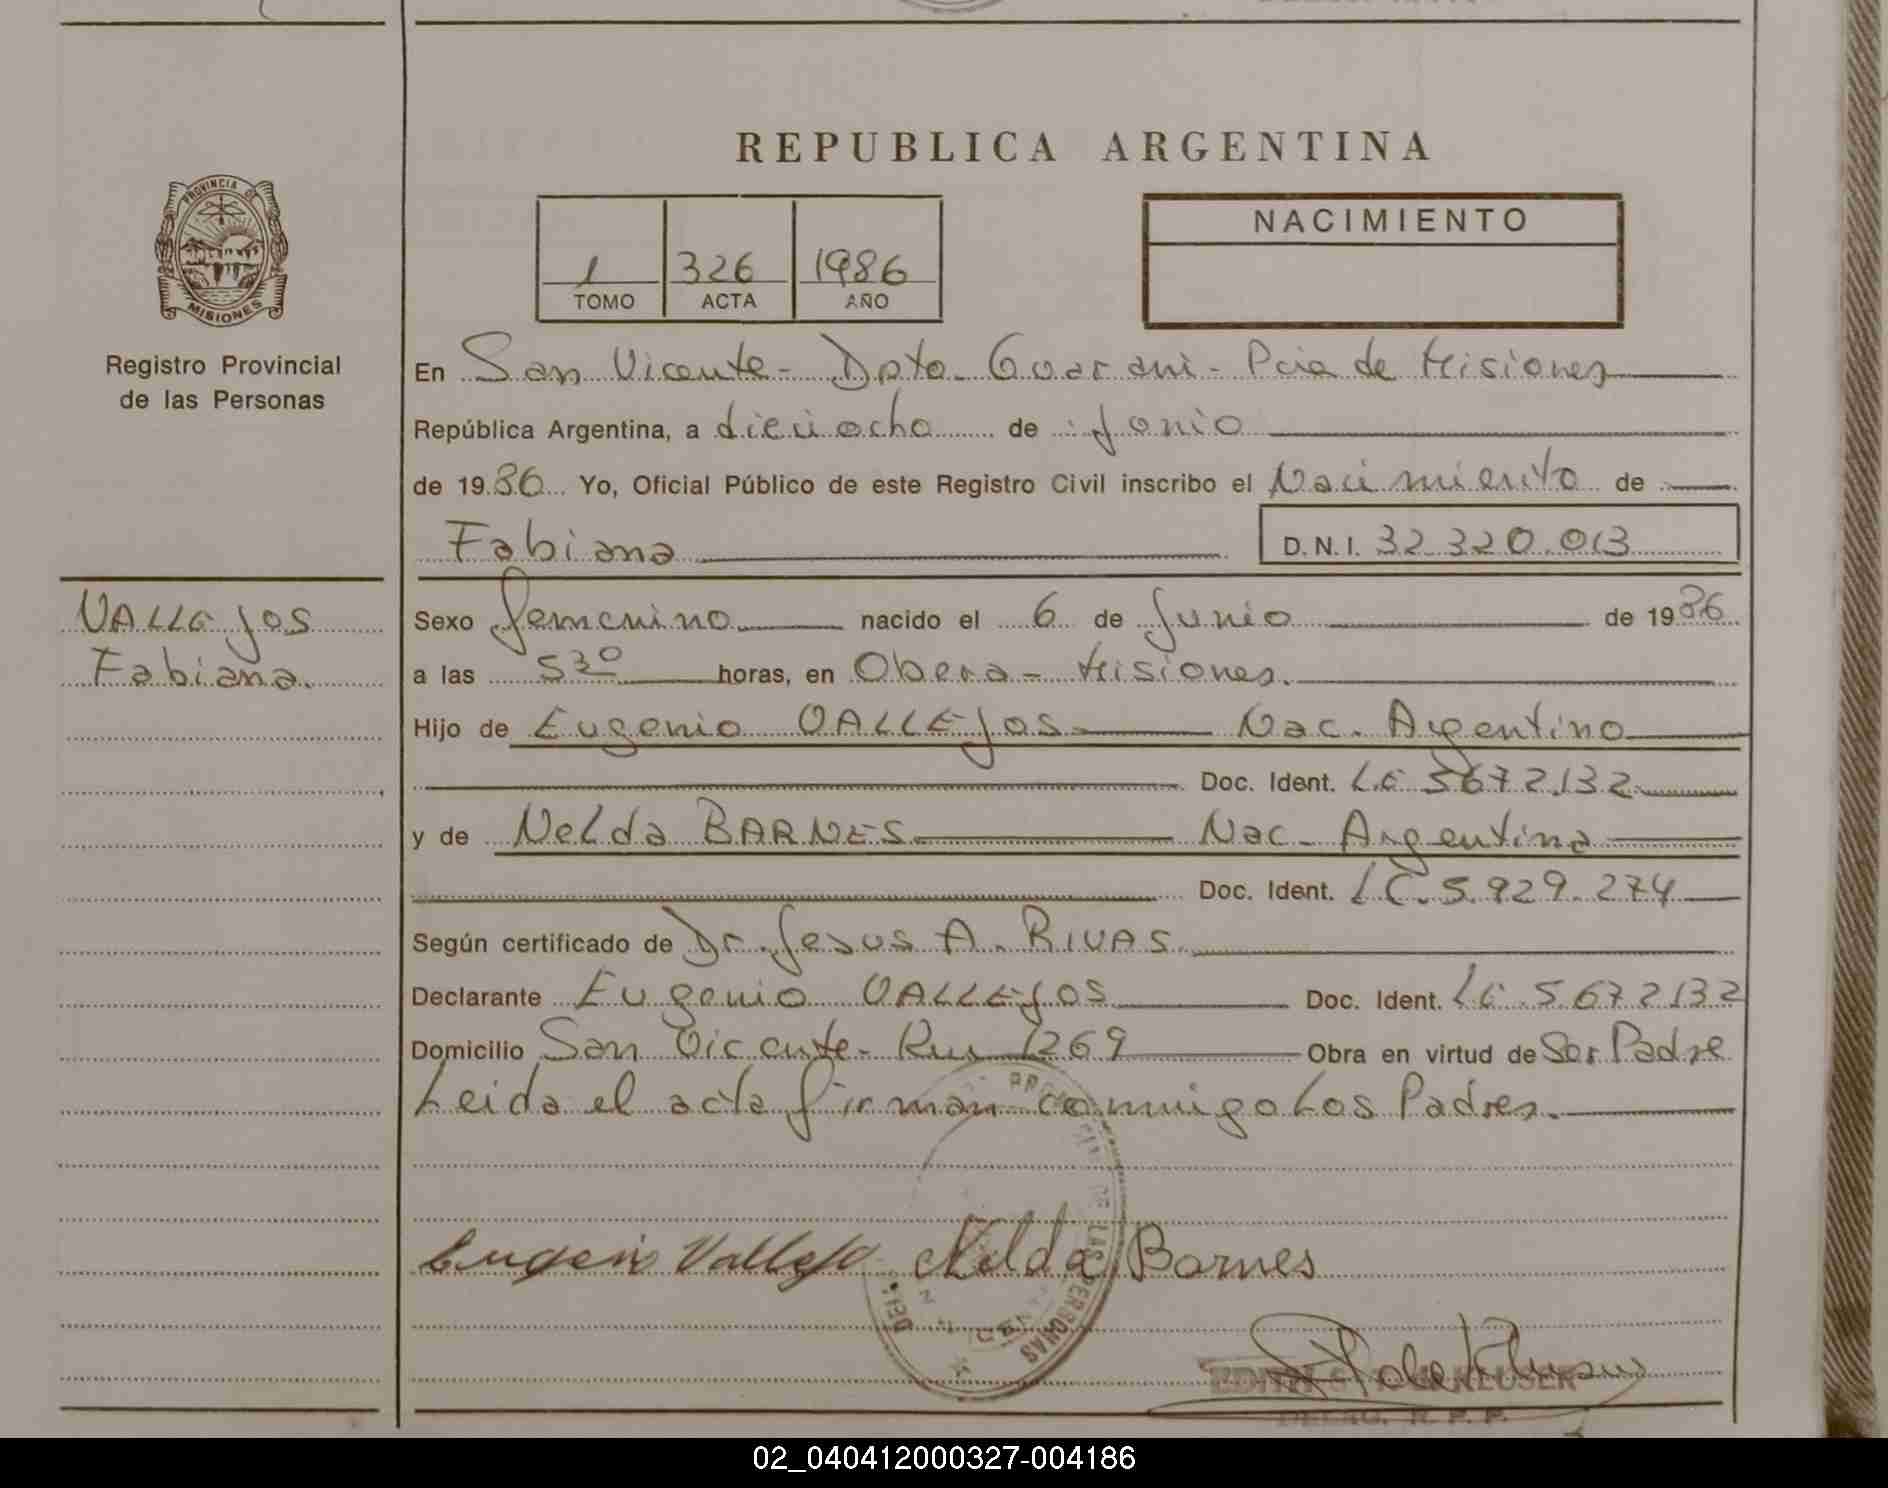 REPUBLICA ARGENTINA
PROVINCIA DE
MISIONES
Registro Provincial
de las Personas
1 326 1986
TOMO ACTA AÑO
NACIMIENTO
En San Vicente - Dpto. Guarani - Pcia de Misiones
República Argentina, a dieciocho de Junio
de 1986 Yo, Oficial Público de este Registro Civil inscribo el Nacimiento de
Fabiana D.N.I. 32.320.013
VALLEJOS
Fabiana.
Sexo femenino nacido el 6 de Junio de 1986
a las 5 30 horas, en Obera - Misiones.
Hijo de Eugenio VALLEJOS Nac. Argentino
Doc. Ident. LE 5672.132
y de Nelda BARNES Nac. Argentina
Doc. Ident. LC. 5.929.274
Según certificado de Dr. Jesus A. RIVAS
Declarante Eugenio VALLEJOS Doc. Ident. LE. 5.672132
Domicilio San Vicente - Ru 1269 Obra en virtud de Ser Padre
Leida el acta firman conmigo Los Padres.
Eugenio Vallejo Nelda Barnes
DELEG. R. P. P.
02_040412000327-004186